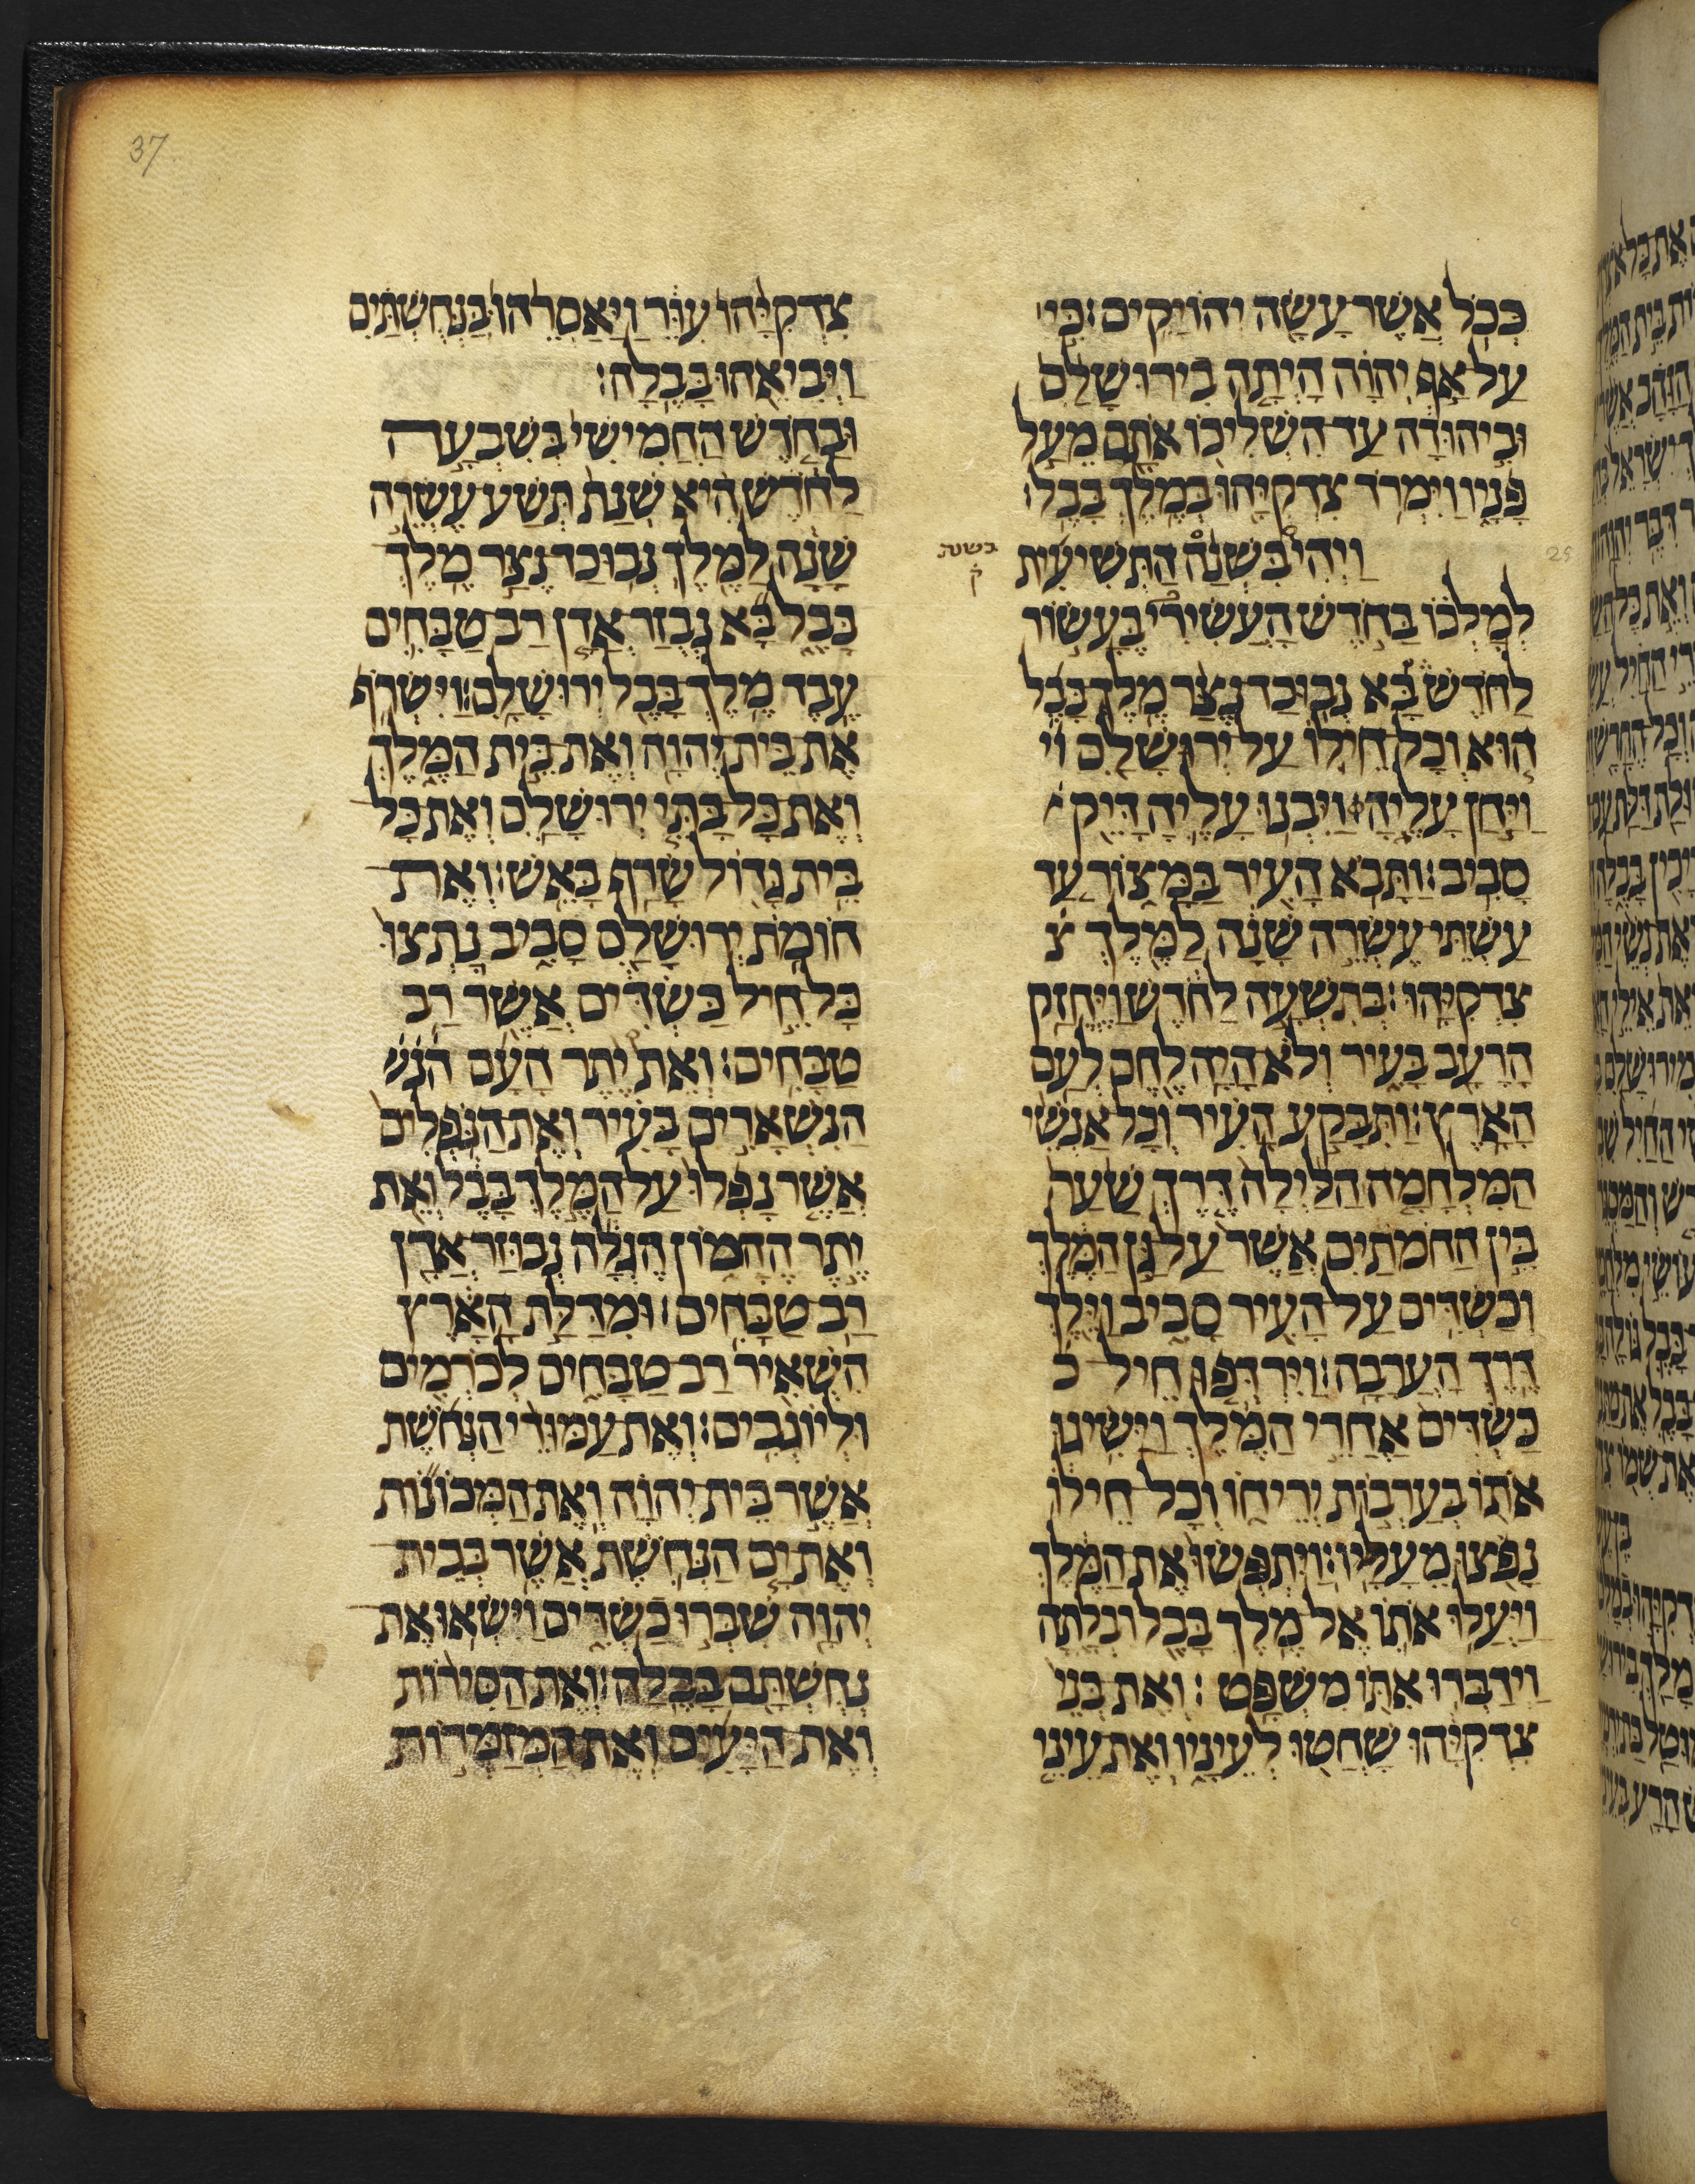 37
כְּכֹ֥ל אֲשֶׁר־עָשָׂ֖ה יְהוֹיָקִֽים׃ כִּ֣י
עַל־אַ֣ף יְהוָ֗ה הָיְתָ֤ה בִירוּשָׁלַ֙͏ִם֙
וּבִ֣יהוּדָ֔ה עַד־הִשְׁלִיכ֥וֹ אֹתָ֖ם מֵעַ֣ל
פָּנָ֑יו וַיִּמְרֹ֥ד צִדְקִיָּ֖הוּ בְּמֶ֥לֶךְ בָּבֶֽל׃
וַיְהִי֩ בִשְׁנַ֨ה הַתְּשִׁיעִ֜ית
בשנת
ק̇
25
לְמָלְכ֗וֹ בַּחֹ֣דֶשׁ הָעֲשִׂירִי֮ בֶּעָשׂ֣וֹר
לַחֹדֶשׁ֒ בָּ֠א נְבוּכַדנֶצַּ֨ר מֶלֶךְ־בָּבֶ֜ל
ה֧וּא וְכָל־חֵיל֛וֹ עַל־יְרוּשָׁלַ֖͏ִם וי
וַיִּ֣חַן עָלֶ֑יהָ וַיִּבְנ֥וּ עָלֶ֛יהָ דָּיֵ֖ק
סָבִֽיב׃ וַתָּבֹ֥א הָעִ֖יר בַּמָּצ֑וֹר עַ֚ד
עַשְׁתֵּ֣י עֶשְׂרֵ֣ה שָׁנָ֔ה לַמֶּ֖לֶךְ צ
צִדְקִיָּֽהוּ׃ בְּתִשְׁעָ֣ה לַחֹ֔דֶשׁ וַיֶּחֱזַ֥ק
הָרָעָ֖ב בָּעִ֑יר וְלֹא־הָ֥יָה לֶ֖חֶם לְעַ֥ם
הָאָֽרֶץ׃ וַתִּבָּקַ֣ע הָעִ֗יר וְכָל־אַנְשֵׁ֨י
הַמִּלְחָמָ֤ה הַלַּ֙יְלָה֙ דֶּ֜רֶךְ שַׁ֣עַר
בֵּ֣ין הַחֹמֹתַ֗יִם אֲשֶׁר֙ עַל־גַּ֣ן הַמֶּ֔לֶךְ
וְכַשְׂדִּ֥ים עַל־הָעִ֖יר סָבִ֑יב וַיֵּ֖לֶךְ
דֶּ֥רֶךְ הָעֲרָבָֽה׃ וַיִּרְדְּפ֤וּ חֵיל כ
כַּשְׂדִּים֙ אַחֲרֵ֣י הַמֶּ֔לֶךְ וַיַּשִּׂ֥גוּ
אֹת֖וֹ בְּעַרְב֣וֹת יְרֵח֑וֹ וְכָל־חֵיל֔וֹ
נָפֹ֖צוּ מֵעָלָֽיו׃ וַֽיִּתְפְּשׂוּ֙ אֶת־הַמֶּ֔לֶךְ
וַיַּעֲל֥וּ אֹת֛וֹ אֶל־מֶ֥לֶךְ בָּבֶ֖ל רִבְלָ֑תָה
וַיְדַבְּר֥וּ אִתּ֖וֹ מִשְׁפָּֽט׃ וְאֶת־בְּנֵי֙
צִדְקִיָּ֔הוּ שָׁחֲט֖וּ לְעֵינָ֑יו וְאֶת־עֵינֵ֤י
צִדְקִיָּ֙הוּ֙ עִוֵּ֔ר וַיַּאַסְרֵ֙הוּ֙ בַּֽנְחֻשְׁתַּ֔יִם
וַיְבִיאֵ֖הוּ בָּבֶֽלָה׃
וּבַחֹ֤דֶשׁ הַֽחֲמִישִׁי֙ בְּשִׁבְעָ֣ה
לַחֹ֔דֶשׁ הִ֗יא שְׁנַת֙ תְּשַֽׁע־עֶשְׂרֵ֣ה
שָׁנָ֔ה לַמֶּ֖לֶךְ נְבוּכַדנֶצַּ֣ר מֶֽלֶךְ
בָּבֶ֑ל בָּ֞א נְבוּזַרְאֲדָ֧ן רַב־טַבָּחִ֛ים
עֶ֥בֶד מֶֽלֶךְ־בָּבֶ֖ל יְרוּשָׁלָֽ͏ִם׃ וַיִּשְׂרֹ֥ף
אֶת־בֵּית־יְהוָ֖ה וְאֶת־בֵּ֣ית הַמֶּ֑לֶךְ
וְאֵ֨ת כָּל־בָּתֵּ֧י יְרוּשָׁלַ֛͏ִם וְאֶת־כָּל
בֵּ֥ית גָּד֖וֹל שָׂרַ֥ף בָּאֵֽשׁ׃ וְאֶת
חוֹמֹ֥ת יְרוּשָׁלַ֖͏ִם סָבִ֑יב נָֽתְצוּ֙
כָּל־חֵ֣יל כַּשְׂדִּ֔ים אֲשֶׁ֖ר רַב
טַבָּחִֽים׃ וְאֵת֩ יֶ֨תֶר הָעָ֜ם הנש
הַנִּשְׁאָרִ֣ים בָּעִ֗יר וְאֶת־הַנֹּֽפְלִים֙
אֲשֶׁ֤ר נָפְלוּ֙ עַל־הַמֶּ֣לֶךְ בָּבֶ֔ל וְאֵ֖ת
יֶ֣תֶר הֶהָמ֑וֹן הֶגְלָ֕ה נְבוּזַרְאֲדָ֖ן
רַב־טַבָּחִֽים׃ וּמִדַּלַּ֣ת הָאָ֔רֶץ
הִשְׁאִ֖יר רַב־טַבָּחִ֑ים לְכֹֽרְמִ֖ים
וּלְיוֹגְבִֽים׃ וְאֶת־עַמּוּדֵ֨י הַנְּחֹ֜שֶׁת
אֲשֶׁ֣ר בֵּית־יְהוָ֗ה וְֽאֶת־הַמְּכֹנ֞וֹת
וְאֶת־יָ֧ם הַנְּחֹ֛שֶׁת אֲשֶׁ֥ר בְּבֵית
יְהוָ֖ה שִׁבְּר֣וּ כַשְׂדִּ֑ים וַיִּשְׂא֥וּ אֶת
נְחֻשְׁתָּ֖ם בָּבֶֽלָה׃ וְאֶת־הַסִּירֹ֨ת
וְאֶת־הַיָּעִ֜ים וְאֶת־הַֽמְזַמְּר֣וֹת